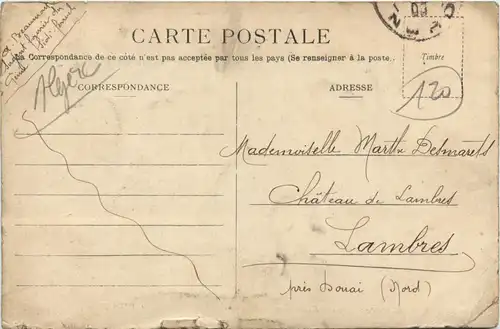 CARTE POSTALE
La Correspondance de ce côté n'est pas acceptée par tous les pays (Se renseigner à la poste.)
Timbre
Algérie
120
CORRESPONDANCE
ADRESSE
Mademoiselle Marthe Desmarets
Château de Lambres
Lambres
près Douai (Nord)